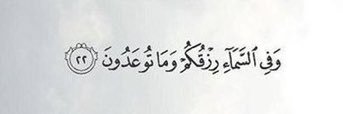 وَفِي السَّمَآءِ رِزْقُكُمْ وَمَا تُوعَدُونَ ٢٢